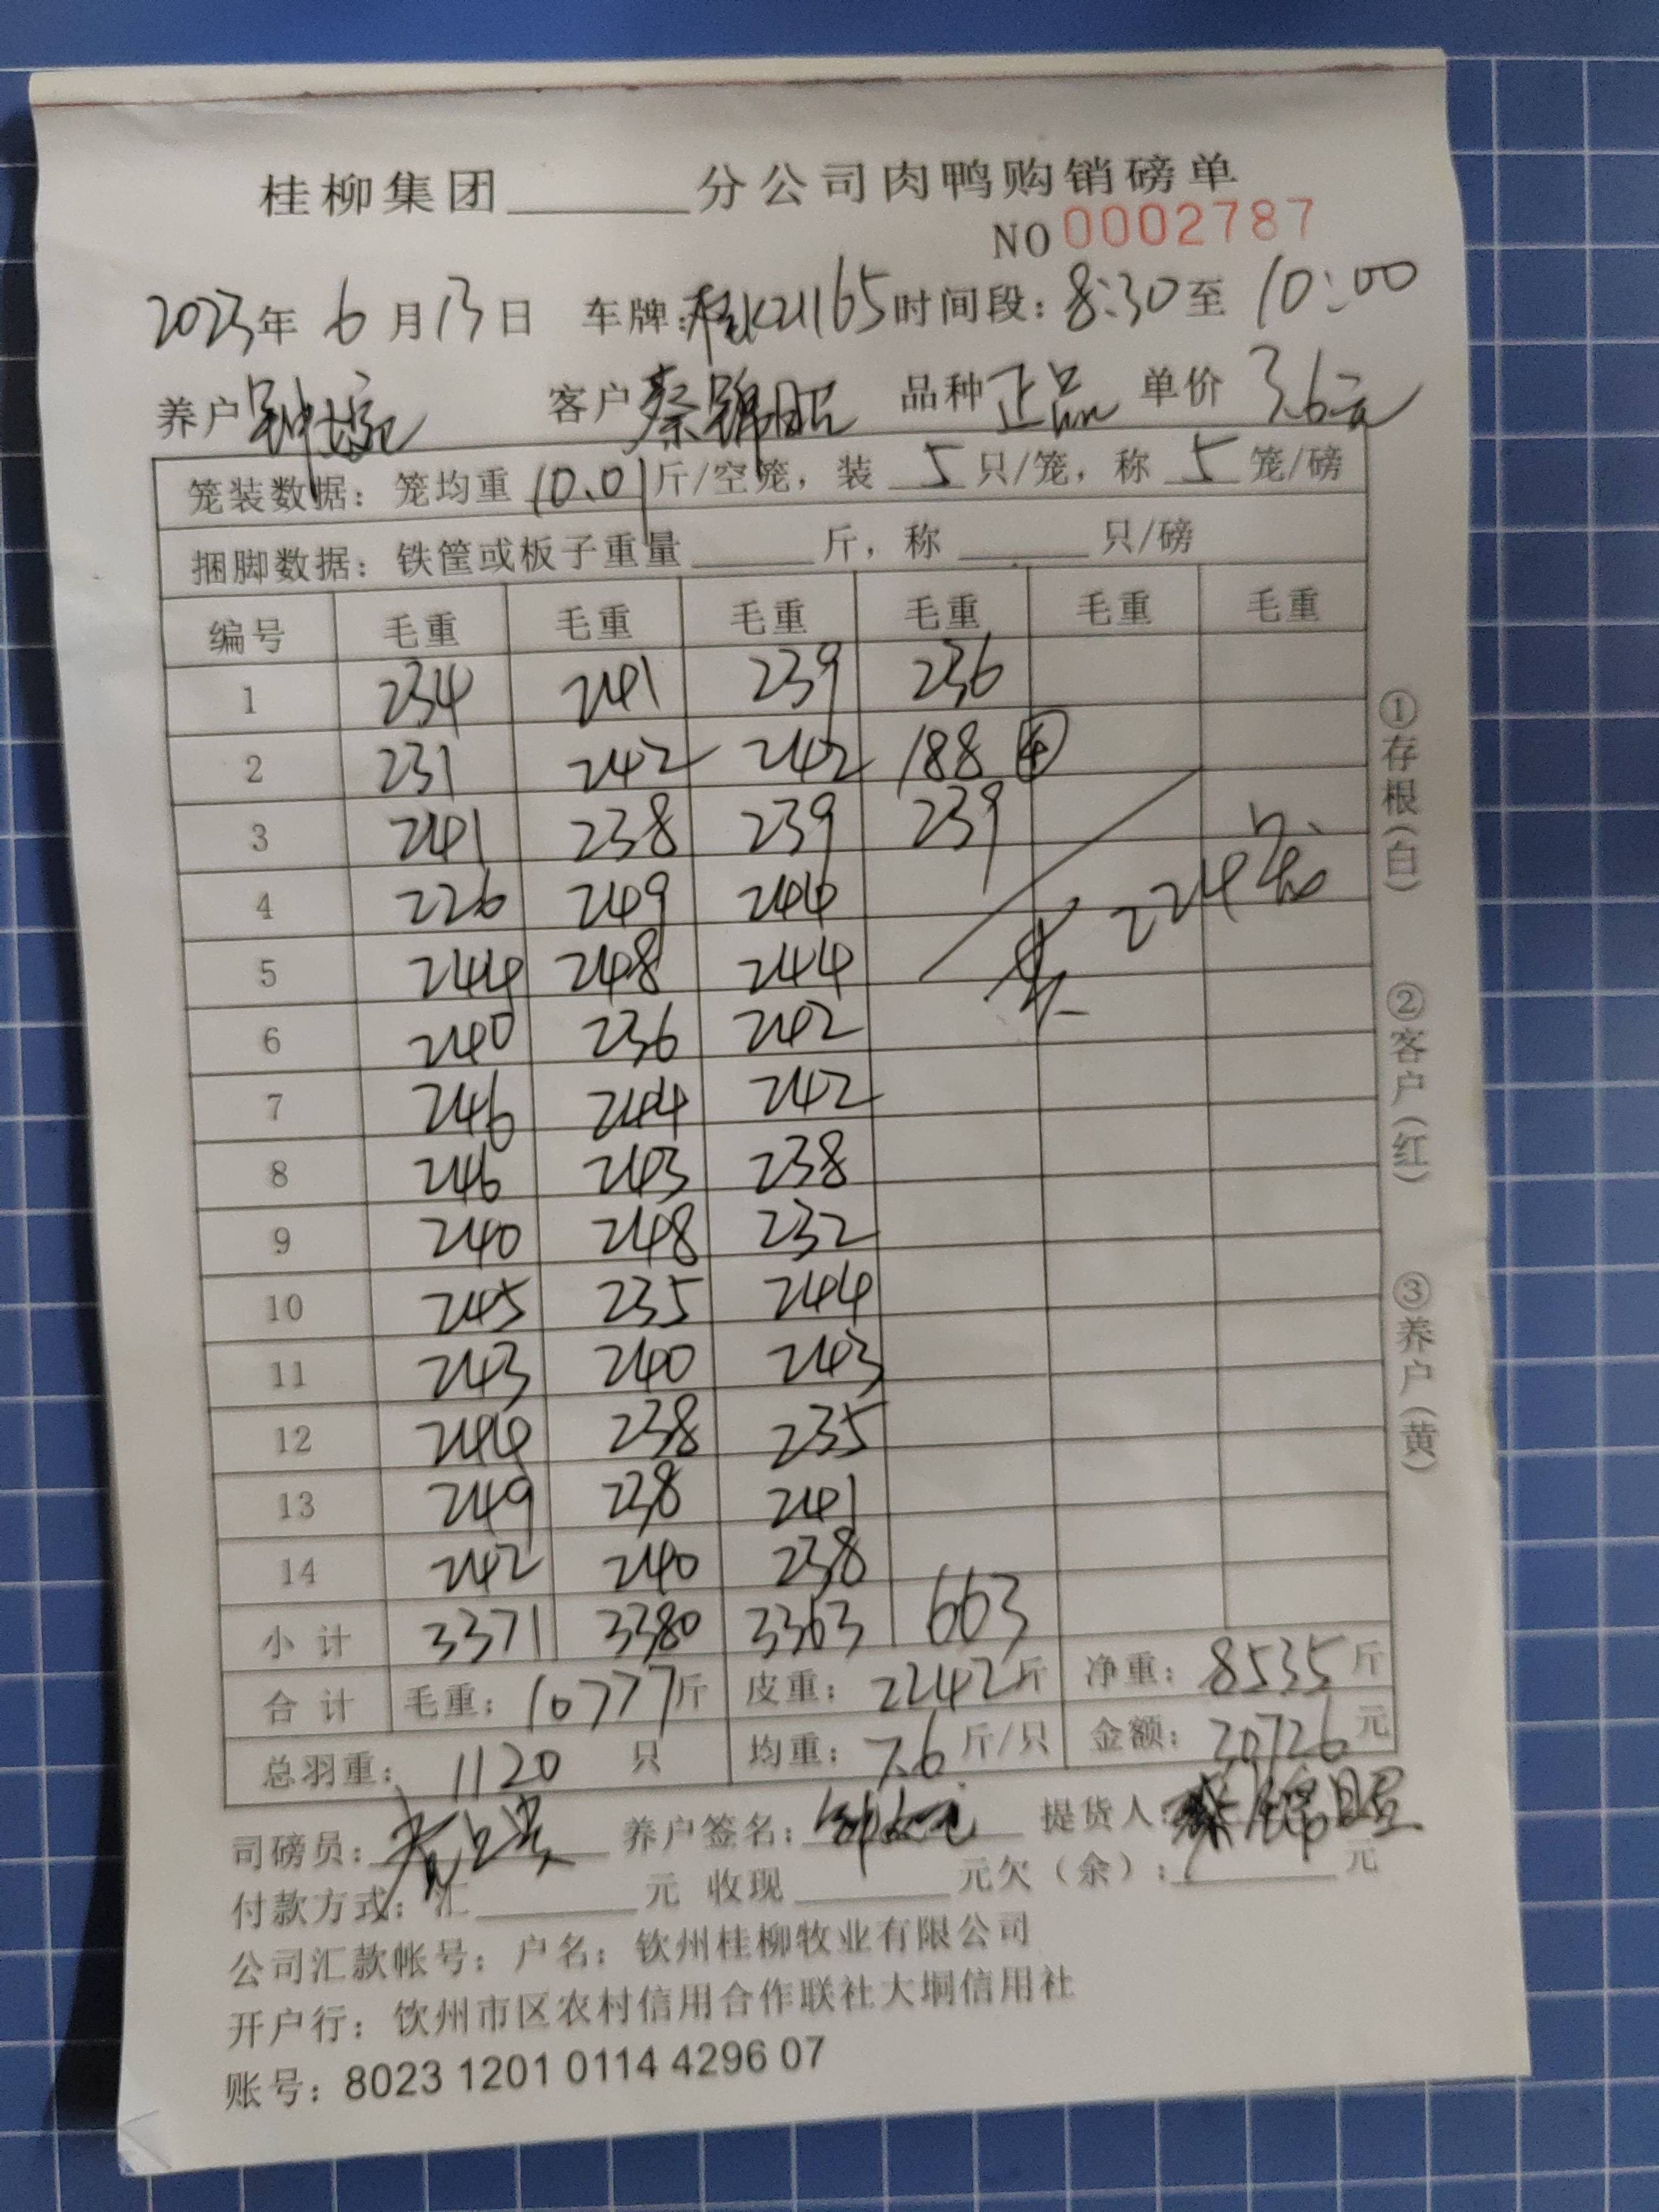 桂柳集团______分公司肉鸭购销磅单
NO 0002787
2023年 6月13日 车牌:桂K21165 时间段: 8:30 至 10:00
养户 客户 蔡锦昭 品种 正品 单价 3.6元
笼装数据: 笼均重 10.01 斤/空笼, 装 5 只/笼, 称 5 笼/磅
捆脚数据: 铁筐或板子重量______斤, 称______只/磅
编号 毛重 毛重 毛重 毛重 毛重 毛重
1 234 241 239 236
2 231 242 242 188 ④
3 241 238 239 239
4 226 249 244 共 224笼
5 244 248 244
6 240 236 242
7 246 244 242
8 246 243 238
9 240 248 232
10 245 235 244
11 243 240 243
12 244 238 235
13 249 238 241
14 242 240 238
小计 3371 3380 3363 663
合计 毛重: 10777斤 皮重: 2242斤 净重: 8535斤
总羽重: 1120 只 均重: 7.6 斤/只 金额: 30726元
司磅员: 养户签名: 提货人: 蔡锦昭
付款方式: 汇______元 收现______元欠(余):______元
公司汇款帐号: 户名: 钦州桂柳牧业有限公司
开户行: 钦州市区农村信用合作联社大垌信用社
账号: 8023 1201 0114 4296 07
①存根(白) ②客户(红) ③养户(黄)